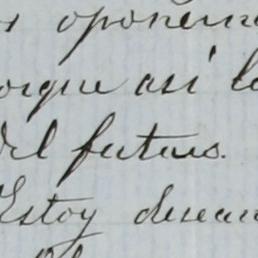 oponem
orque asi lo
del futuro.
Estoy desean